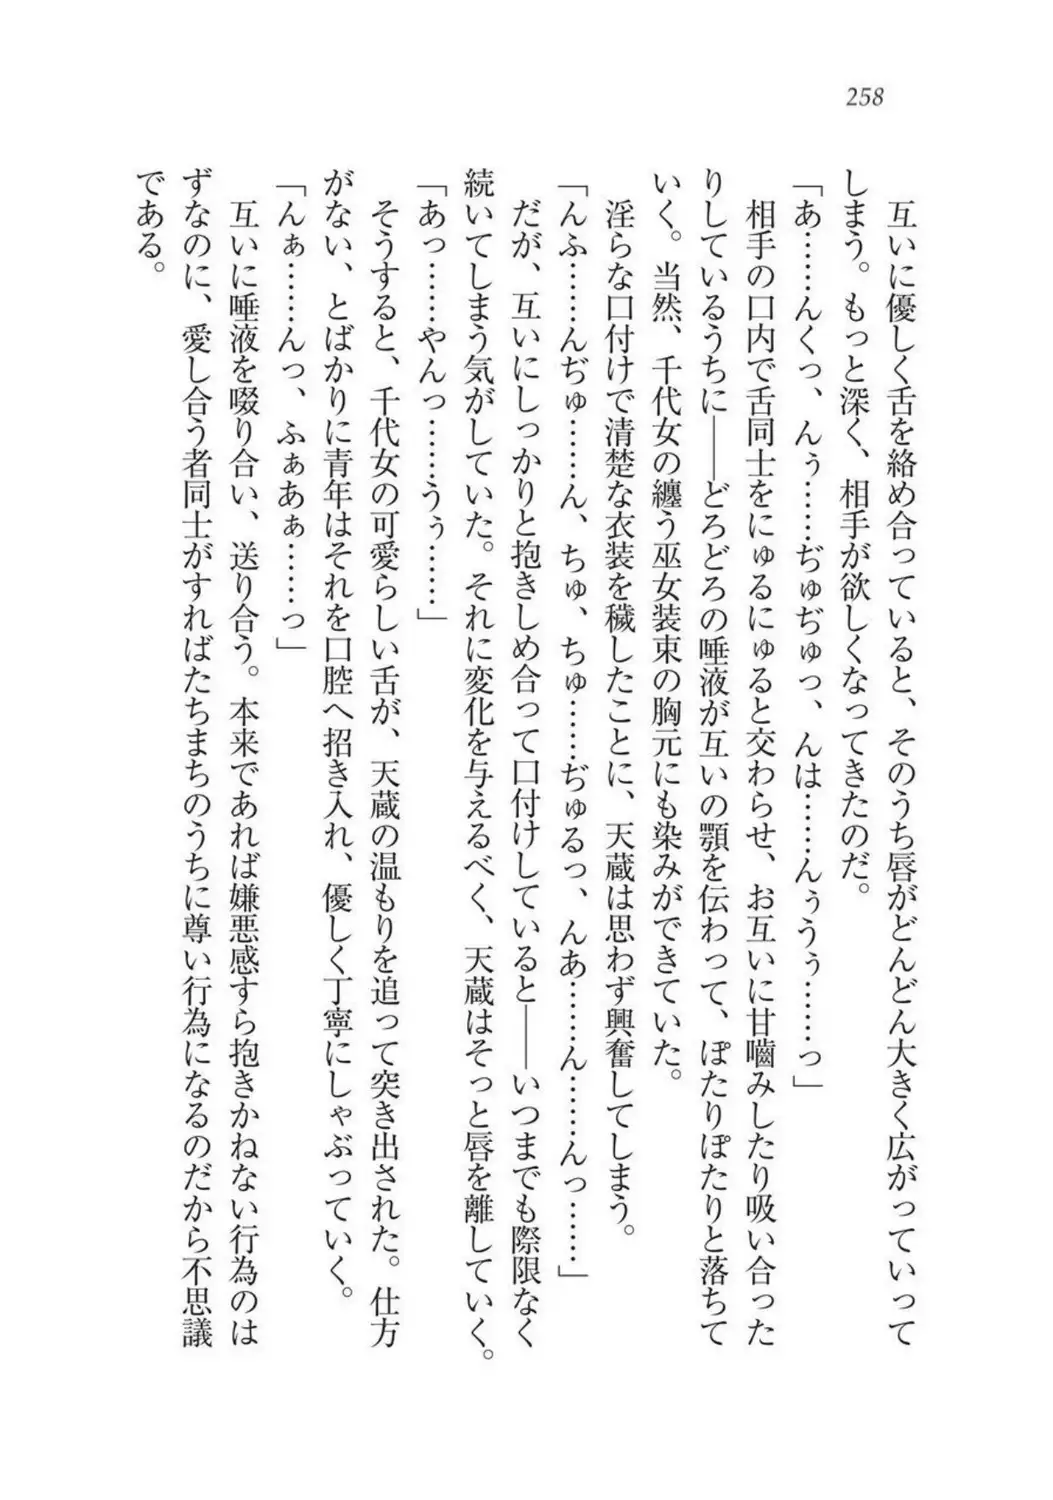 258
　互いに優しく舌を絡め合っていると、そのうち唇がどんどん大きく広がっていって
しまう。もっと深く、相手が欲しくなってきたのだ。
「あ……んくっ、んぅ……ぢゅぢゅっ、んは……んぅうぅ……っ」
　相手の口内で舌同士をにゅるにゅると交わらせ、お互いに甘嚙みしたり吸い合った
りしているうちに――どろどろの唾液が互いの顎を伝わって、ぽたりぽたりと落ちて
いく。当然、千代女の纏う巫女装束の胸元にも染みができていた。
　淫らな口付けで清楚な衣装を穢したことに、天蔵は思わず興奮してしまう。
「んふ……んぢゅ……ん、ちゅ、ちゅ……ぢゅるっ、んあ……ん……んっ……」
　だが、互いにしっかりと抱きしめ合って口付けしていると――いつまでも際限なく
続いてしまう気がしていた。それに変化を与えるべく、天蔵はそっと唇を離していく。
「あっ……やんっ……うぅ……」
　そうすると、千代女の可愛らしい舌が、天蔵の温もりを追って突き出された。仕方
がない、とばかりに青年はそれを口腔へ招き入れ、優しく丁寧にしゃぶっていく。
「んぁ……んっ、ふぁあぁ……っ」
　互いに唾液を啜り合い、送り合う。本来であれば嫌悪感すら抱きかねない行為のは
ずなのに、愛し合う者同士がすればたちまちのうちに尊い行為になるのだから不思議
である。